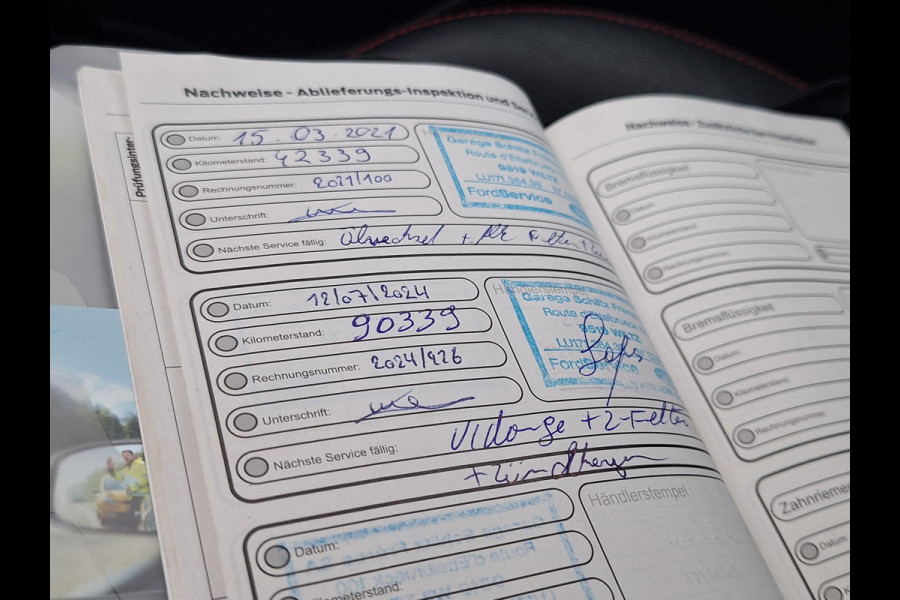 Nachweise - Ablieferungs-Inspektion und
Prüfungsinter-
Datum: 15.03.2021
Kilometerstand: 42339
Rechnungsnummer: 2021/100
Unterschrift:
Nächste Service fällig: Ölwechsel +
Garage Schiltz
Route d'Ettelbruck
9519 WILTZ
FordService
Datum: 12/07/2024
Kilometerstand: 90339
Rechnungsnummer: 2024/926
Unterschrift:
Nächste Service fällig: Vidange + 2-Felter
+ Zündkerzen
Händlerstempel
Garage Schiltz
Route d'Ettelbruck
9519 WILTZ
FordService
Datum:
Kilometerstand:
Händlerstempel
Nachweise -
Bremsflüssigkeit
Datum
Kilometerstand
Rechnungsnummer
Bremsflüssigkeit
Datum
Kilometerstand
Rechnungsnummer
Zahnrieme
Datum